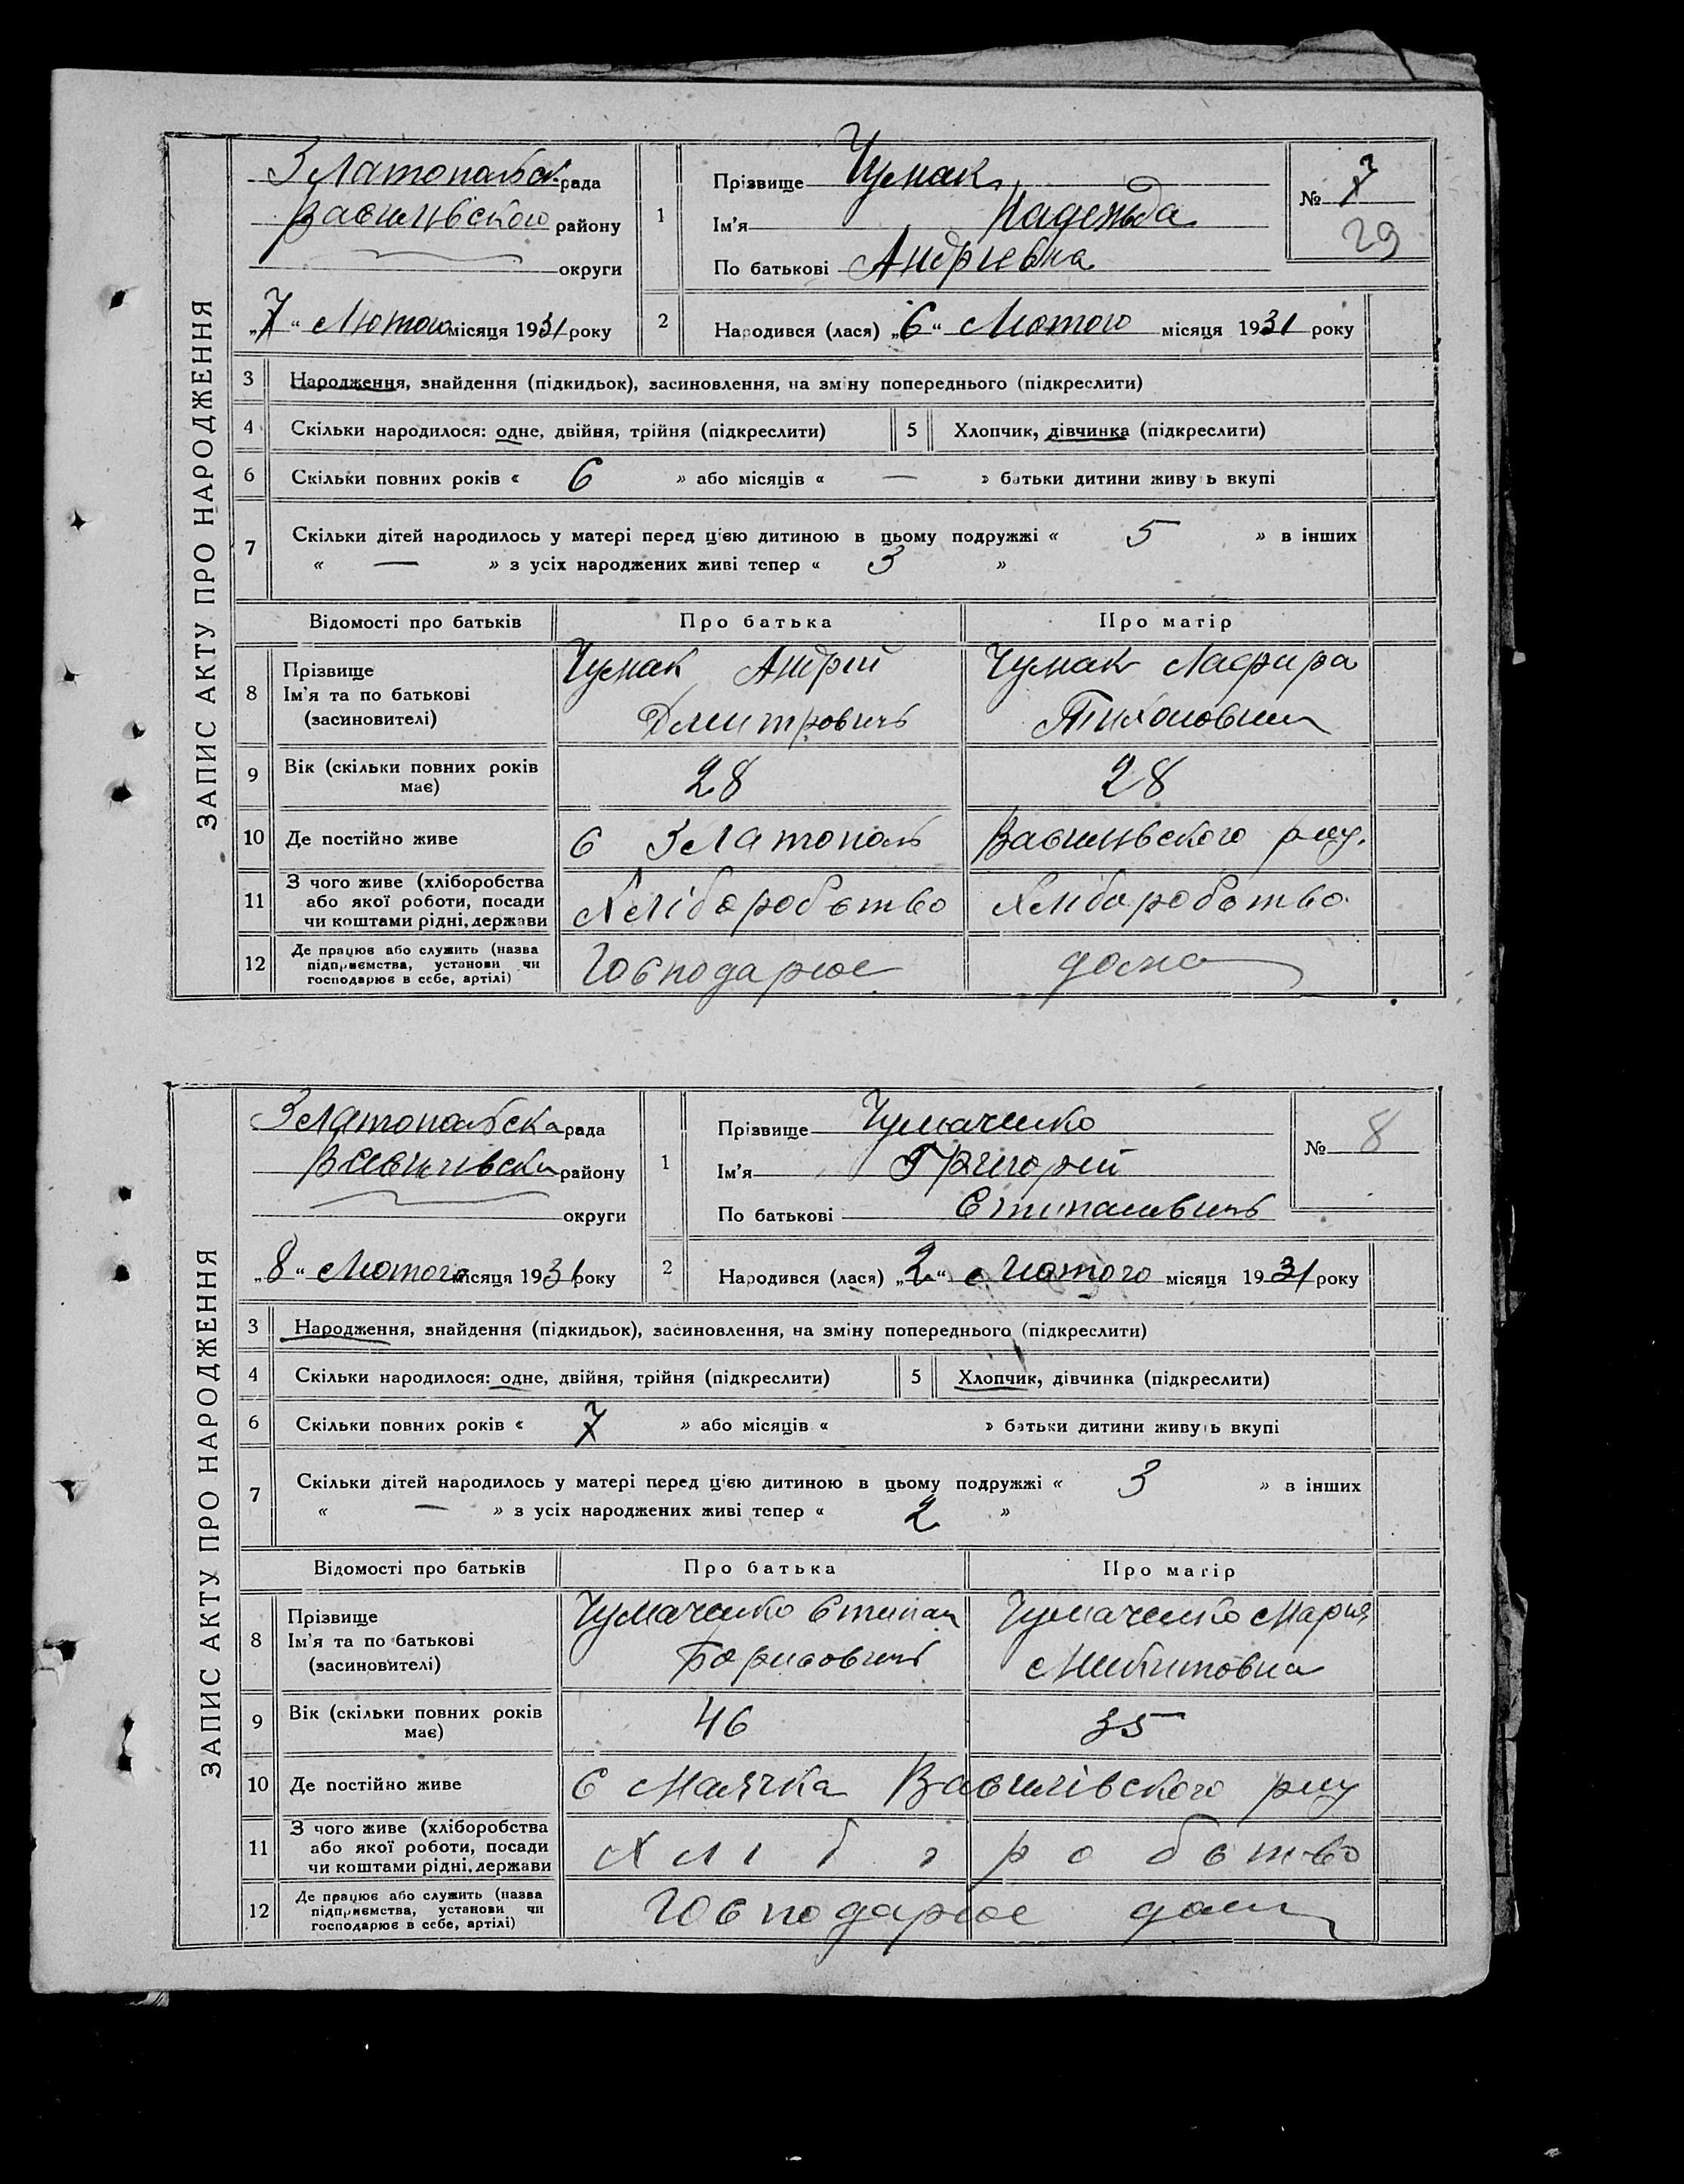 ЗАПИС АКТУ ПРО НАРОДЖЕННЯ
Златопольск. рада
Василівского району
округи
„7“ Лютого місяця 1931 року
1 Прізвище Чумак
Ім'я Надежда
По батькові Андріевна
№ 7
29
2 Народився (лася) „6“ Лютого місяця 1931 року
3 Народження, знайдення (підкидьок), засиновлення, на зміну попереднього (підкреслити)
4 Скільки народилося: одне, двійня, трійня (підкреслити) 5 Хлопчик, дівчинка (підкреслити)
6 Скільки повних років « 6 » або місяців « — » батьки дитини живуть вкупі
7 Скільки дітей народилось у матері перед цією дитиною в цьому подружжі « 5 » в інших
« — » з усіх народжених живі тепер « 3 »
Відомості про батьків Про батька Про матір
8 Прізвище Ім'я та по батькові (засиновителі)
Чумак Андрій Дмитровичь
Чумак
9 Вік (скільки повних років має) 28 28
10 Де постійно живе с Златополь Василівского рну.
11 З чого живе (хліборобства або якої роботи, посади чи коштами рідні, держави Хліборобство Хліборобство
12 Де працює або служить (назва підприємства, установи чи господарює в себе, артілі) Господарює дома
ЗАПИС АКТУ ПРО НАРОДЖЕННЯ
Златопольска рада
Василівски району
округи
„8“ Лютого місяця 1931 року
1 Прізвище Чумаченко
Ім'я Григорій
По батькові Степановичь
№ 8
2 Народився (лася) „2“ Лютого місяця 1931 року
3 Народження, знайдення (підкидьок), засиновлення, на зміну попереднього (підкреслити)
4 Скільки народилося: одне, двійня, трійня (підкреслити) 5 Хлопчик, дівчинка (підкреслити)
6 Скільки повних років « 7 » або місяців « » батьки дитини живуть вкупі
7 Скільки дітей народилось у матері перед цією дитиною в цьому подружжі « 3 » в інших
« — » з усіх народжених живі тепер « 2 »
Відомості про батьків Про батька Про матір
8 Прізвище Ім'я та по батькові (засиновителі)
Чумаченко Степан Борисовичь
Чумаченко Мария
9 Вік (скільки повних років має) 46 35
10 Де постійно живе с Маячка Василівского рну
11 З чого живе (хліборобства або якої роботи, посади чи коштами рідні, держави Хліборобство
12 Де працює або служить (назва підприємства, установи чи господарює в себе, артілі) Господарює дома